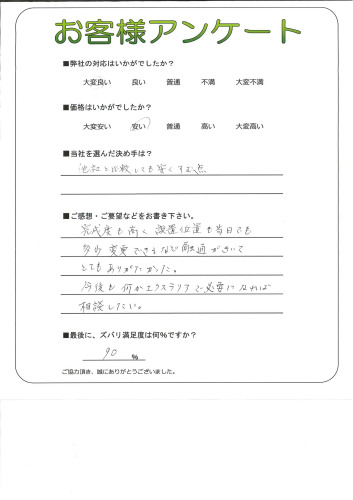 お客様アンケート
■弊社の対応はいかがでしたか？
大変良い 良い 普通 不満 大変不満
■価格はいかがでしたか？
大変安い 安い 普通 高い 大変高い
■当社を選んだ決め手は？
他社と比較しても安くすむ点
■ご感想・ご要望などをお書き下さい。
完成度も高く 設置位置も当日でも
多少 変更できるなど融通がきいて
とてもありがたかった。
今後も何かエクステリアで必要になれば
相談したい。
■最後に、ズバリ満足度は何%ですか？
90 %
ご協力頂き、誠にありがとうございました。